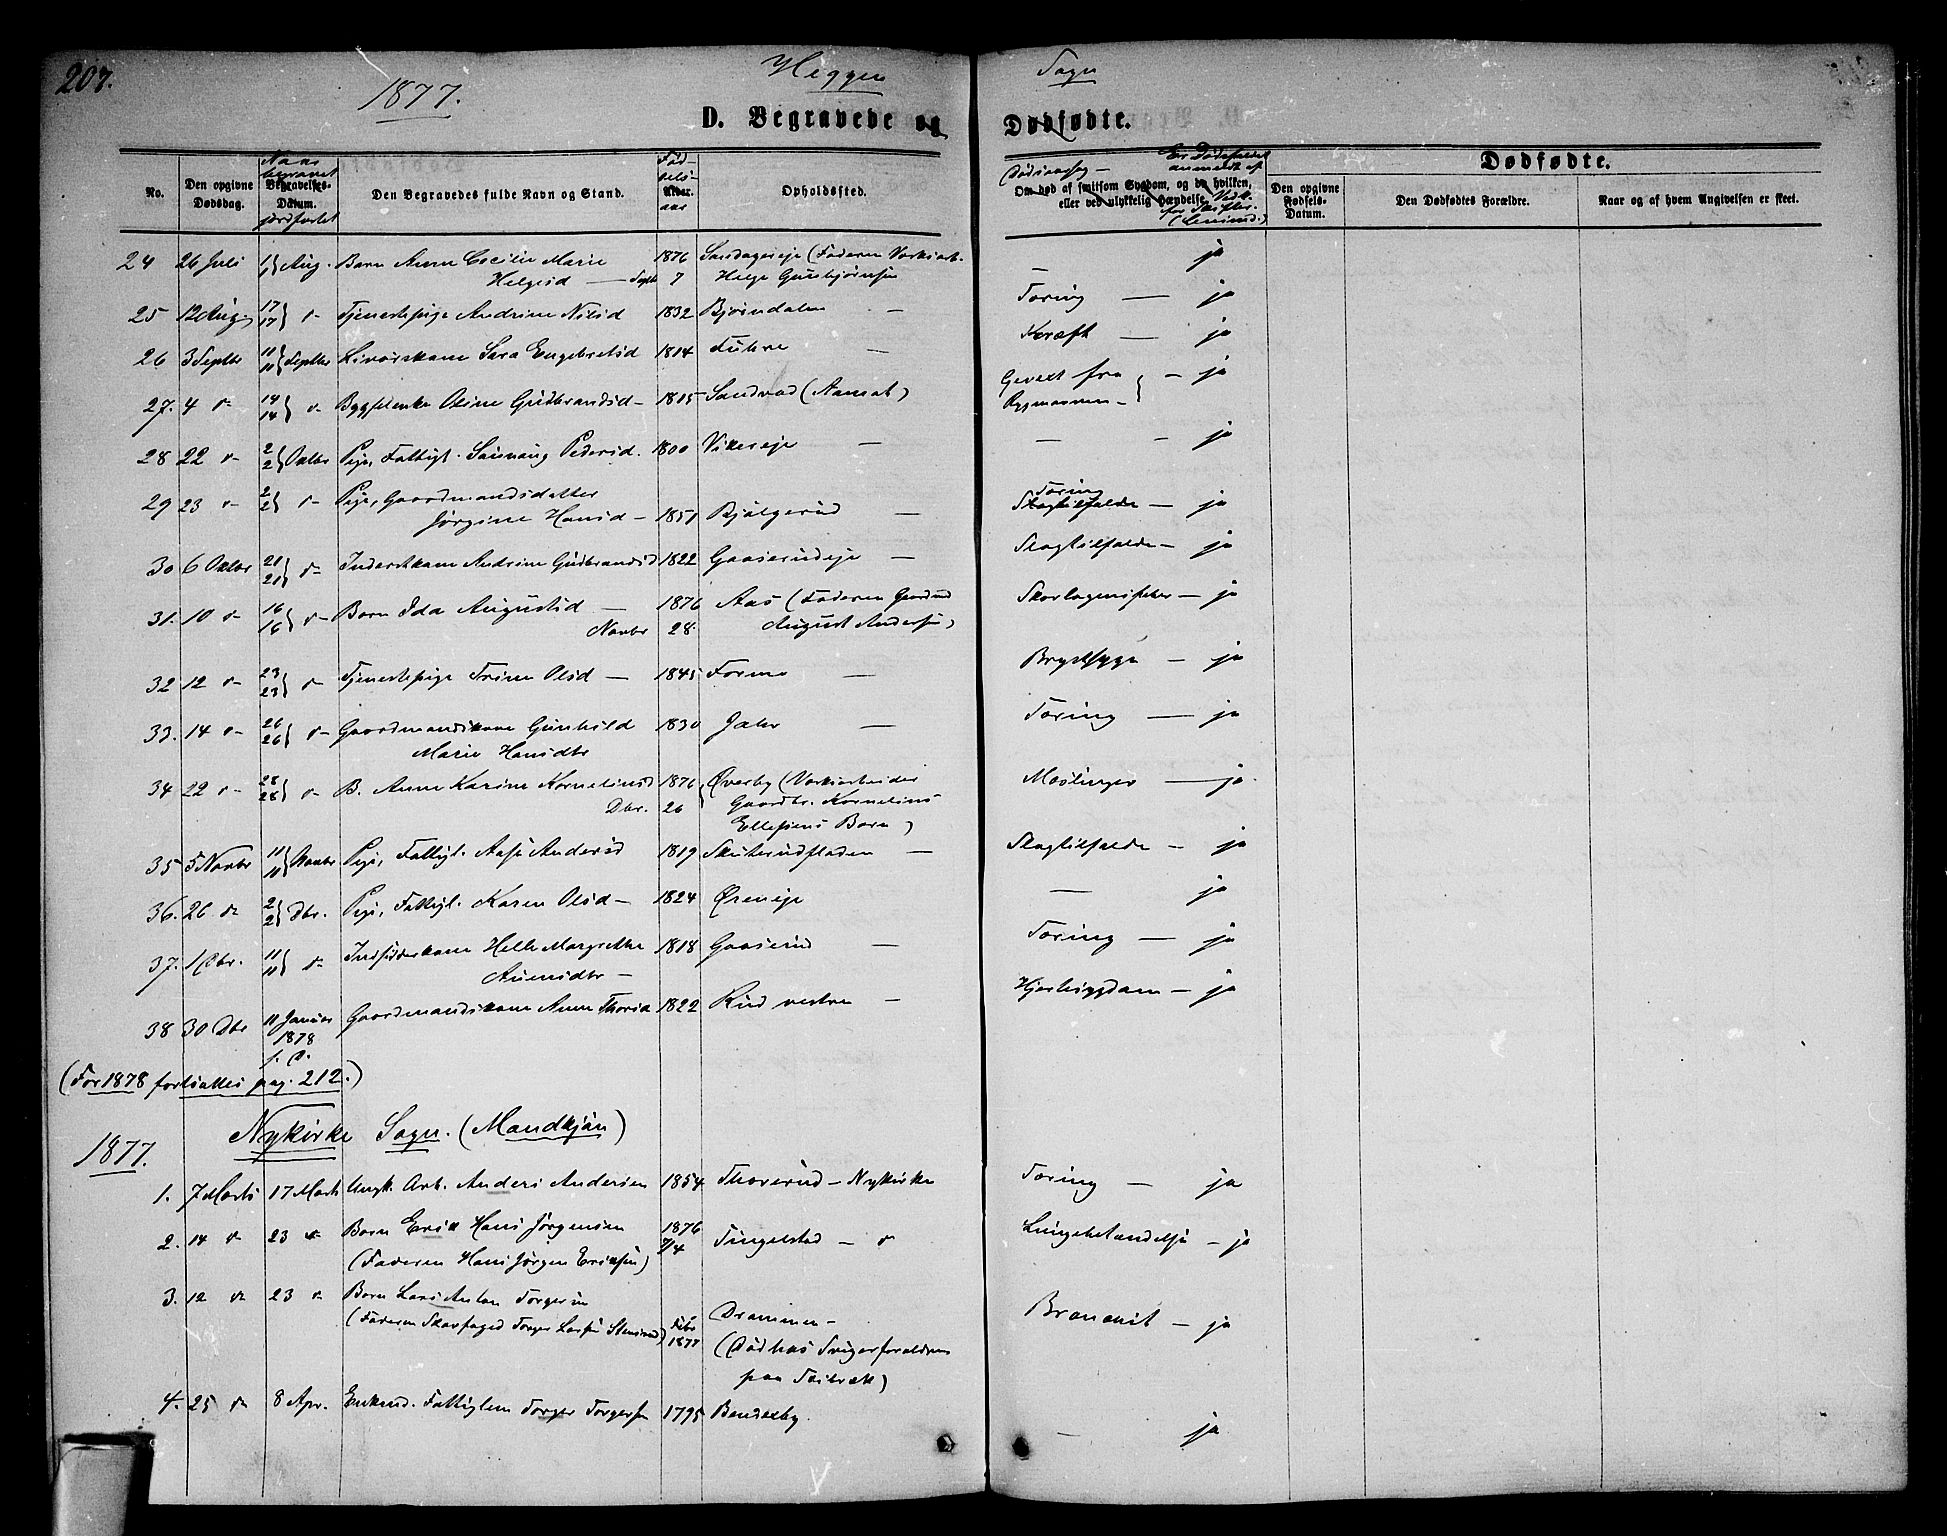 207.
1877.
Heggen
Sogn
D. Begravede og
Dødfødte.
No.
Den opgivne Dødsdag.
Naar begravet
Begravelses-Datum.
jordfæstet
Den Begravedes fulde Navn og Stand.
Fød-sels-aar
Alder.
Opholdssted.
Dødsaarsag
Om død af smitsom Sygdom, og da hvilken,
eller ved ulykkelig Hændelse.
Er Dødsfaldet anmeldt
Dødfødte.
Den opgivne Fødsels-Datum.
Den Dødfødtes Forældre.
Naar og af hvem Angivelsen er skeet.
24 26 Juli 1/1 Aug. Barn Anne Cecilie Marie 1876 (Faderen — ja
Helgesd — Septb 7 Helge Gunbjørnsen
25 12 Aug. 17/17 d Tjenestepige Andrine Nilsd 1832 Bjørndalen — Tæring — ja
26 3 Septbr 11/11 Septbr Sara Engebretsd 1814 — Kræft — ja
27. 4 d 14/14 d Oline Gudbrandsd — 1805 Sandvad — ja
28 22 d 2/2 Octbr Pige, Fattigl. Pedersd. 1800 Vikeseje — — — ja
29 23 d 2/2 d Pige, Gaardmandsdatter Tæring
Jørgine Hansd — 1851 Bjølgerud — Slagtilfælde — ja
30 6 Octbr 20/20 d Andrine Gudbrandsd 1822 Gaaserudeje — Slagtilfælde — ja
31. 10 d 16/16 d Barn Ida Augustsd — 1876 Aas (Faderen Skarlagensfeber — ja
Novbr 28. August Andersen)
32 12 d 23/23 d Tjenestepige Trine Olsd — 1845 Formo — Brystsyge — ja
33. 14 d 26/26 d Gaardmandskone Gunhild 1830 Jahr — Tæring — ja
Marie Hansdtr
34 22 d 28/28 d B. Anne Karine Kornelinsd 1876 Øverby (Værkiarbeider Mæslinger — ja.
Dbr. 26 Gaardbr. Kornelius
Ellefsens Barn)
35 5 Novbr 11/11 Novbr Pige, Fattigl. Aase Andersd 1819 Skuterudfladen — Slagtilfælde — ja
36. 26 d 2/2 Dbr. Pige, Fattigl. Karen Olsd — 1824 Øreneje — ja
37. 1 Dbr. 11/11 d Indsidderkone Helle Margrethe 1818 Gaaserud — Tæring — ja
38 30 Dbr 11 Januar 1878 Gaardmandskone Anne Thorsd 1822 Rud vestre — Hjertesygdom — ja
f. D.
(For 1878 fortsættes pag. 212.)
1877. Nykirke Sogn.
1. 7 Marts 17 Marts Ungk. Arb. Anders Andersen 1854 Thorerud — Nykirke Tæring — ja
2. 14 d 23 d Barn Erik Hans Jørgensen 1876 7/4 Tingelstad — d Lungebetændelse — ja
(Faderen Hans Jørgen Eriksen)
3. 12 d 23 d Barn Lars Anton Torgersen Febr 1877 Drammen — Broncnit — ja
(Faderen Torger Larsen Stensrud) (Død hos Svigerforældrene
paa
4. 25 d 8 Apr. Enkemd. Fattiglem Torger Torgersen 1795 Bendexby. — ja